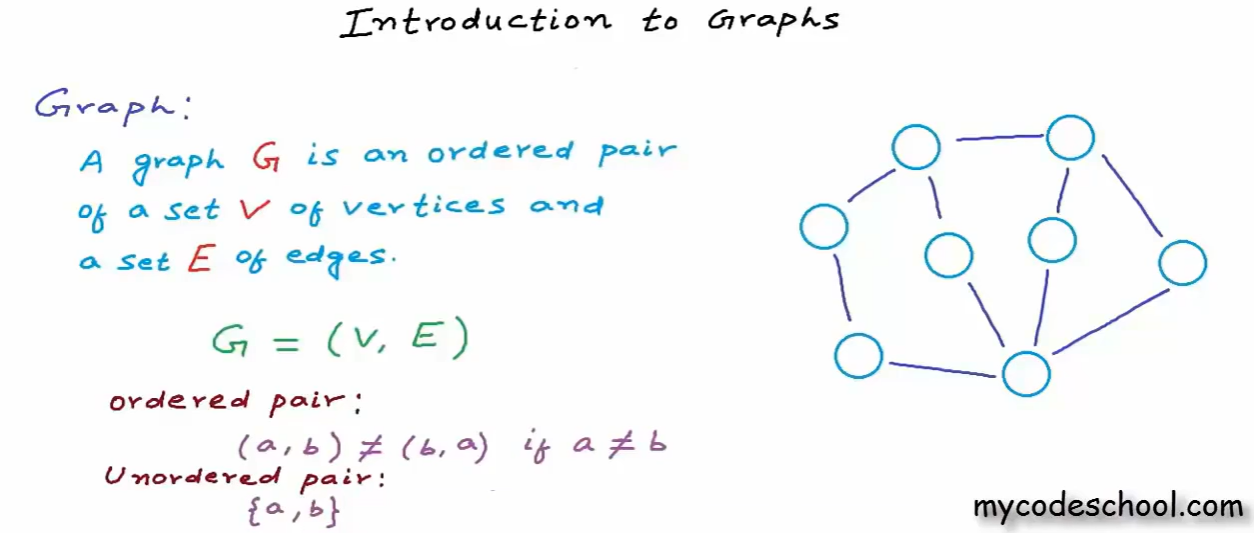 Introduction to Graphs
Graph:
A graph G is an ordered pair
of a set V of vertices and
a set E of edges.
G = (V, E)
ordered pair:
(a, b) ≠ (b, a) if a ≠ b
Unordered pair:
{a, b}
mycodeschool.com